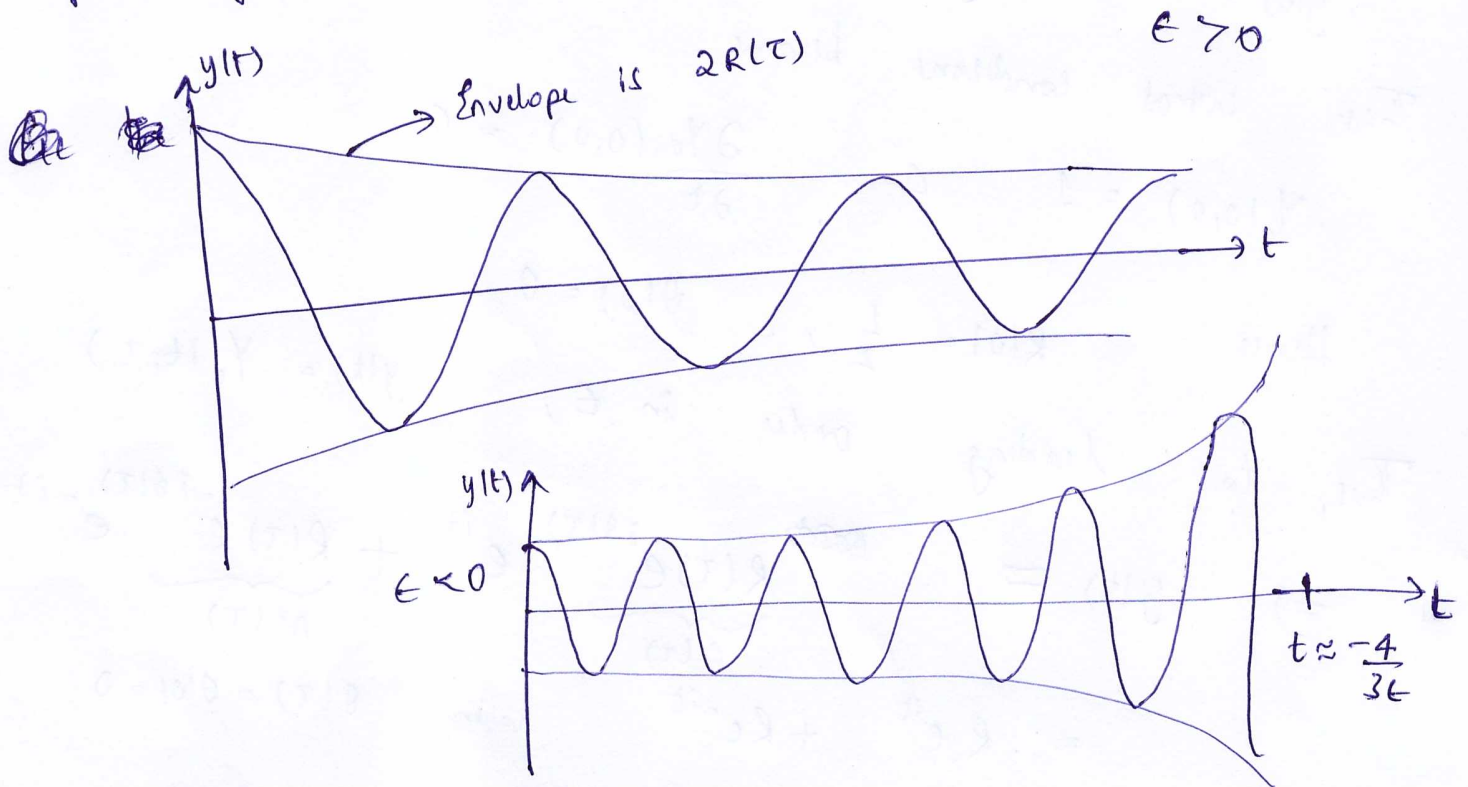 ϵ > 0
y(t)
Envelope is 2R(τ)
t
y(t)
ϵ < 0
t
t ≈ -4/3ϵ